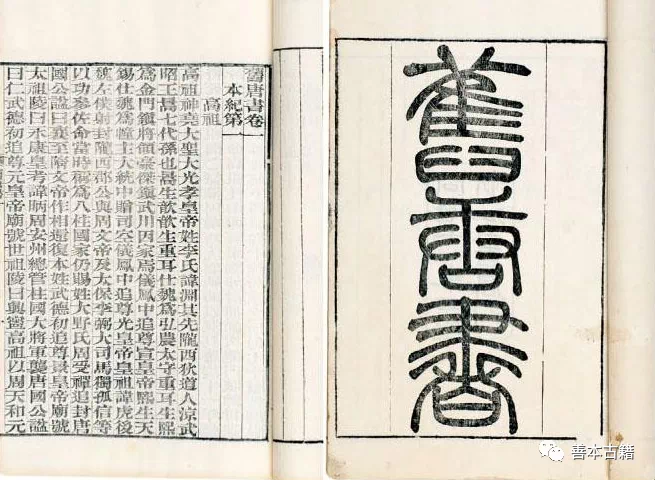 舊唐書
舊唐書卷
本紀第一
高祖
高祖神堯大聖大光孝皇帝姓李氏諱淵其先隴西狄道人涼武
昭王暠七代孫也暠生歆歆生重耳仕魏爲弘農太守重耳生熙
爲金門鎮將領豪傑鎮武川因家焉儀鳳中追尊宣皇帝熙生天
錫仕魏爲幢主大統中贈司空儀鳳中追尊光皇帝皇祖諱虎後
魏左僕射封隴西郡公與周文帝及太保李弼大司馬獨孤信等
以功參佐命當時稱爲八柱國家仍賜姓大野氏周受禪追封唐
國公謚曰襄至隋文帝作相還復本姓武德初追尊景皇帝廟號
太祖陵曰永康皇考諱昞周安州總管柱國大將軍襲唐國公謚
曰仁武德初追尊元皇帝廟號世祖陵曰興寧高祖以周天和元
善本古籍